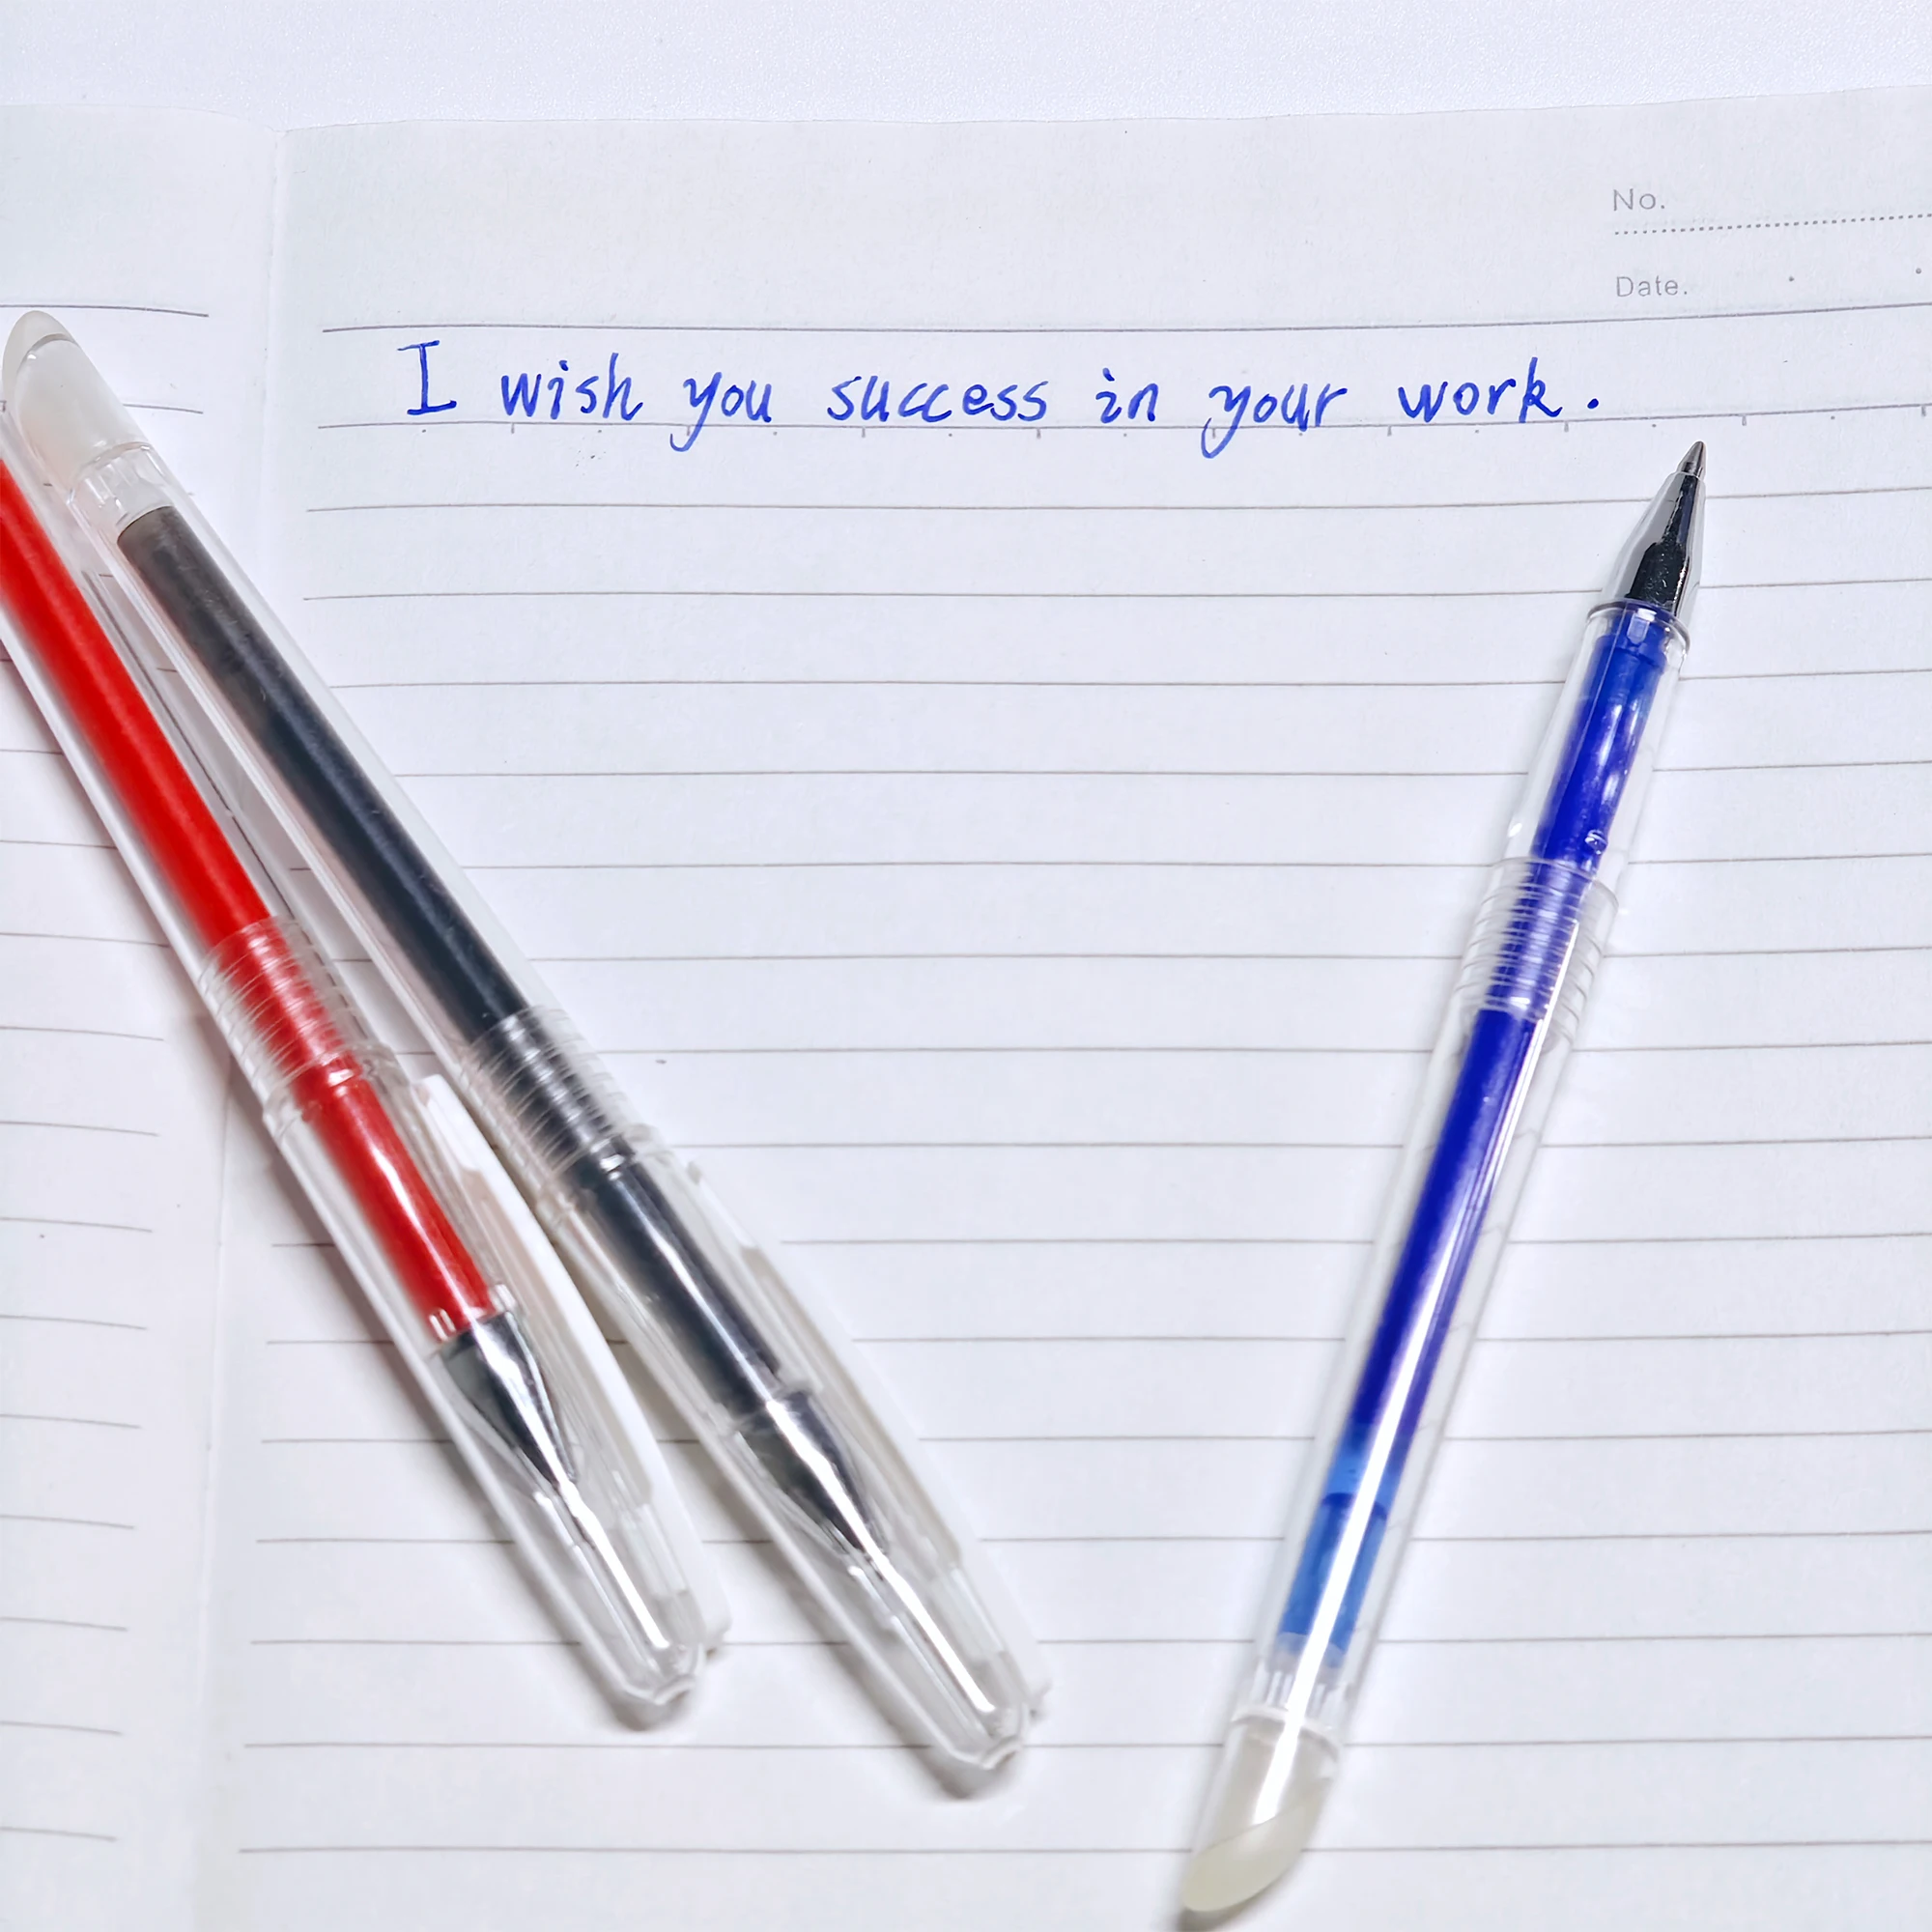 No.
Date.
I wish you success in your work.